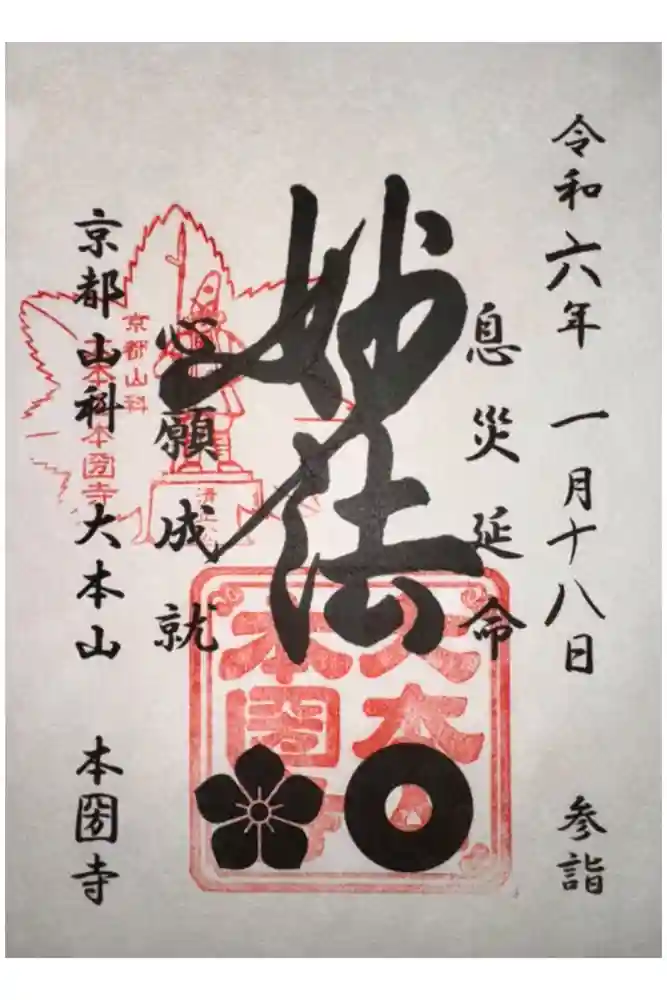 令和六年 一月十八日 参詣
息災延命
妙法
心願成就
京都山科 大本山 本圀寺
京都山科
本圀寺
大本
本圀寺